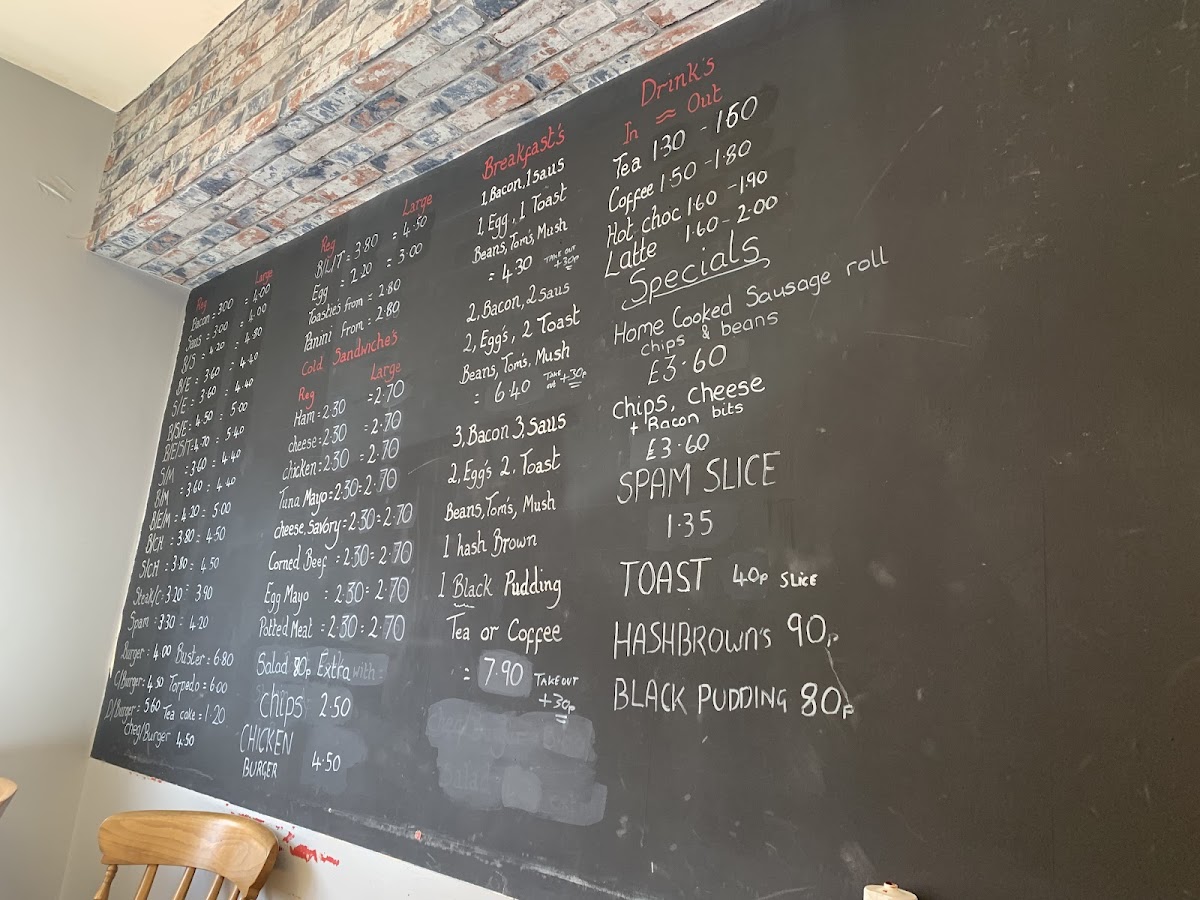 Reg Large
Bacon = 3.00 = 4.00
Saus = 3.00 = 4.00
B/S = 4.20 = 4.80
B/E = 3.60 = 4.40
S/E = 3.60 = 4.40
B/S/E = 4.50 = 5.00
B/E/S/T = 4.70 = 5.40
S/M = 3.60 = 4.40
B/M = 3.60 = 4.40
B/E/M = 4.20 = 5.00
B/CH = 3.80 = 4.50
S/CH = 3.80 = 4.50
Steak/C = 3.20 = 3.90
Spam = 3.30 = 4.20
Burger = 4.00 Buster = 6.80
C/Burger = 4.50 Torpedo = 6.00
D/Burger = 5.60 Tea cake = 1.20
cheg/Burger 4.50
Reg Large
B/L/T = 3.80 = 4.50
Egg = 2.20 = 3.00
Toasties from = 2.80
Panini from = 2.80
Cold Sandwiche's
Reg Large
Ham = 2.30 = 2.70
cheese = 2.30 = 2.70
chicken = 2.30 = 2.70
Tuna Mayo = 2.30 = 2.70
cheese, Savory = 2.30 = 2.70
Corned Beef = 2.30 = 2.70
Egg Mayo = 2.30 = 2.70
Potted Meat = 2.30 = 2.70
Salad 80p Extra with =
Chips 2.50
CHICKEN
BURGER 4.50
Breakfast's
1, Bacon, 1 Saus
1 Egg, 1 Toast
Beans, Tom's, Mush
= 4.30 TAKE OUT +30p
2, Bacon, 2 Saus
2, Egg's, 2 Toast
Beans, Tom's, Mush
= 6.40 TAKE out +30p
3, Bacon 3, Saus
2, Egg's 2, Toast
Beans, Tom's, Mush
1 hash Brown
1 Black Pudding
Tea or Coffee
= 7.90 TAKE OUT
+30p
Drink's
In ≈ Out
Tea 1.30 - 1.60
Coffee 1.50 - 1.80
Hot choc 1.60 - 1.90
Latte 1.60 - 2.00
Specials
Home Cooked Sausage roll
chips & beans
£3.60
Chips, Cheese
+ Bacon bits
£3.60
SPAM SLICE
1.35
TOAST 40p SLICE
HASHBROWN'S 90p
BLACK PUDDING 80p